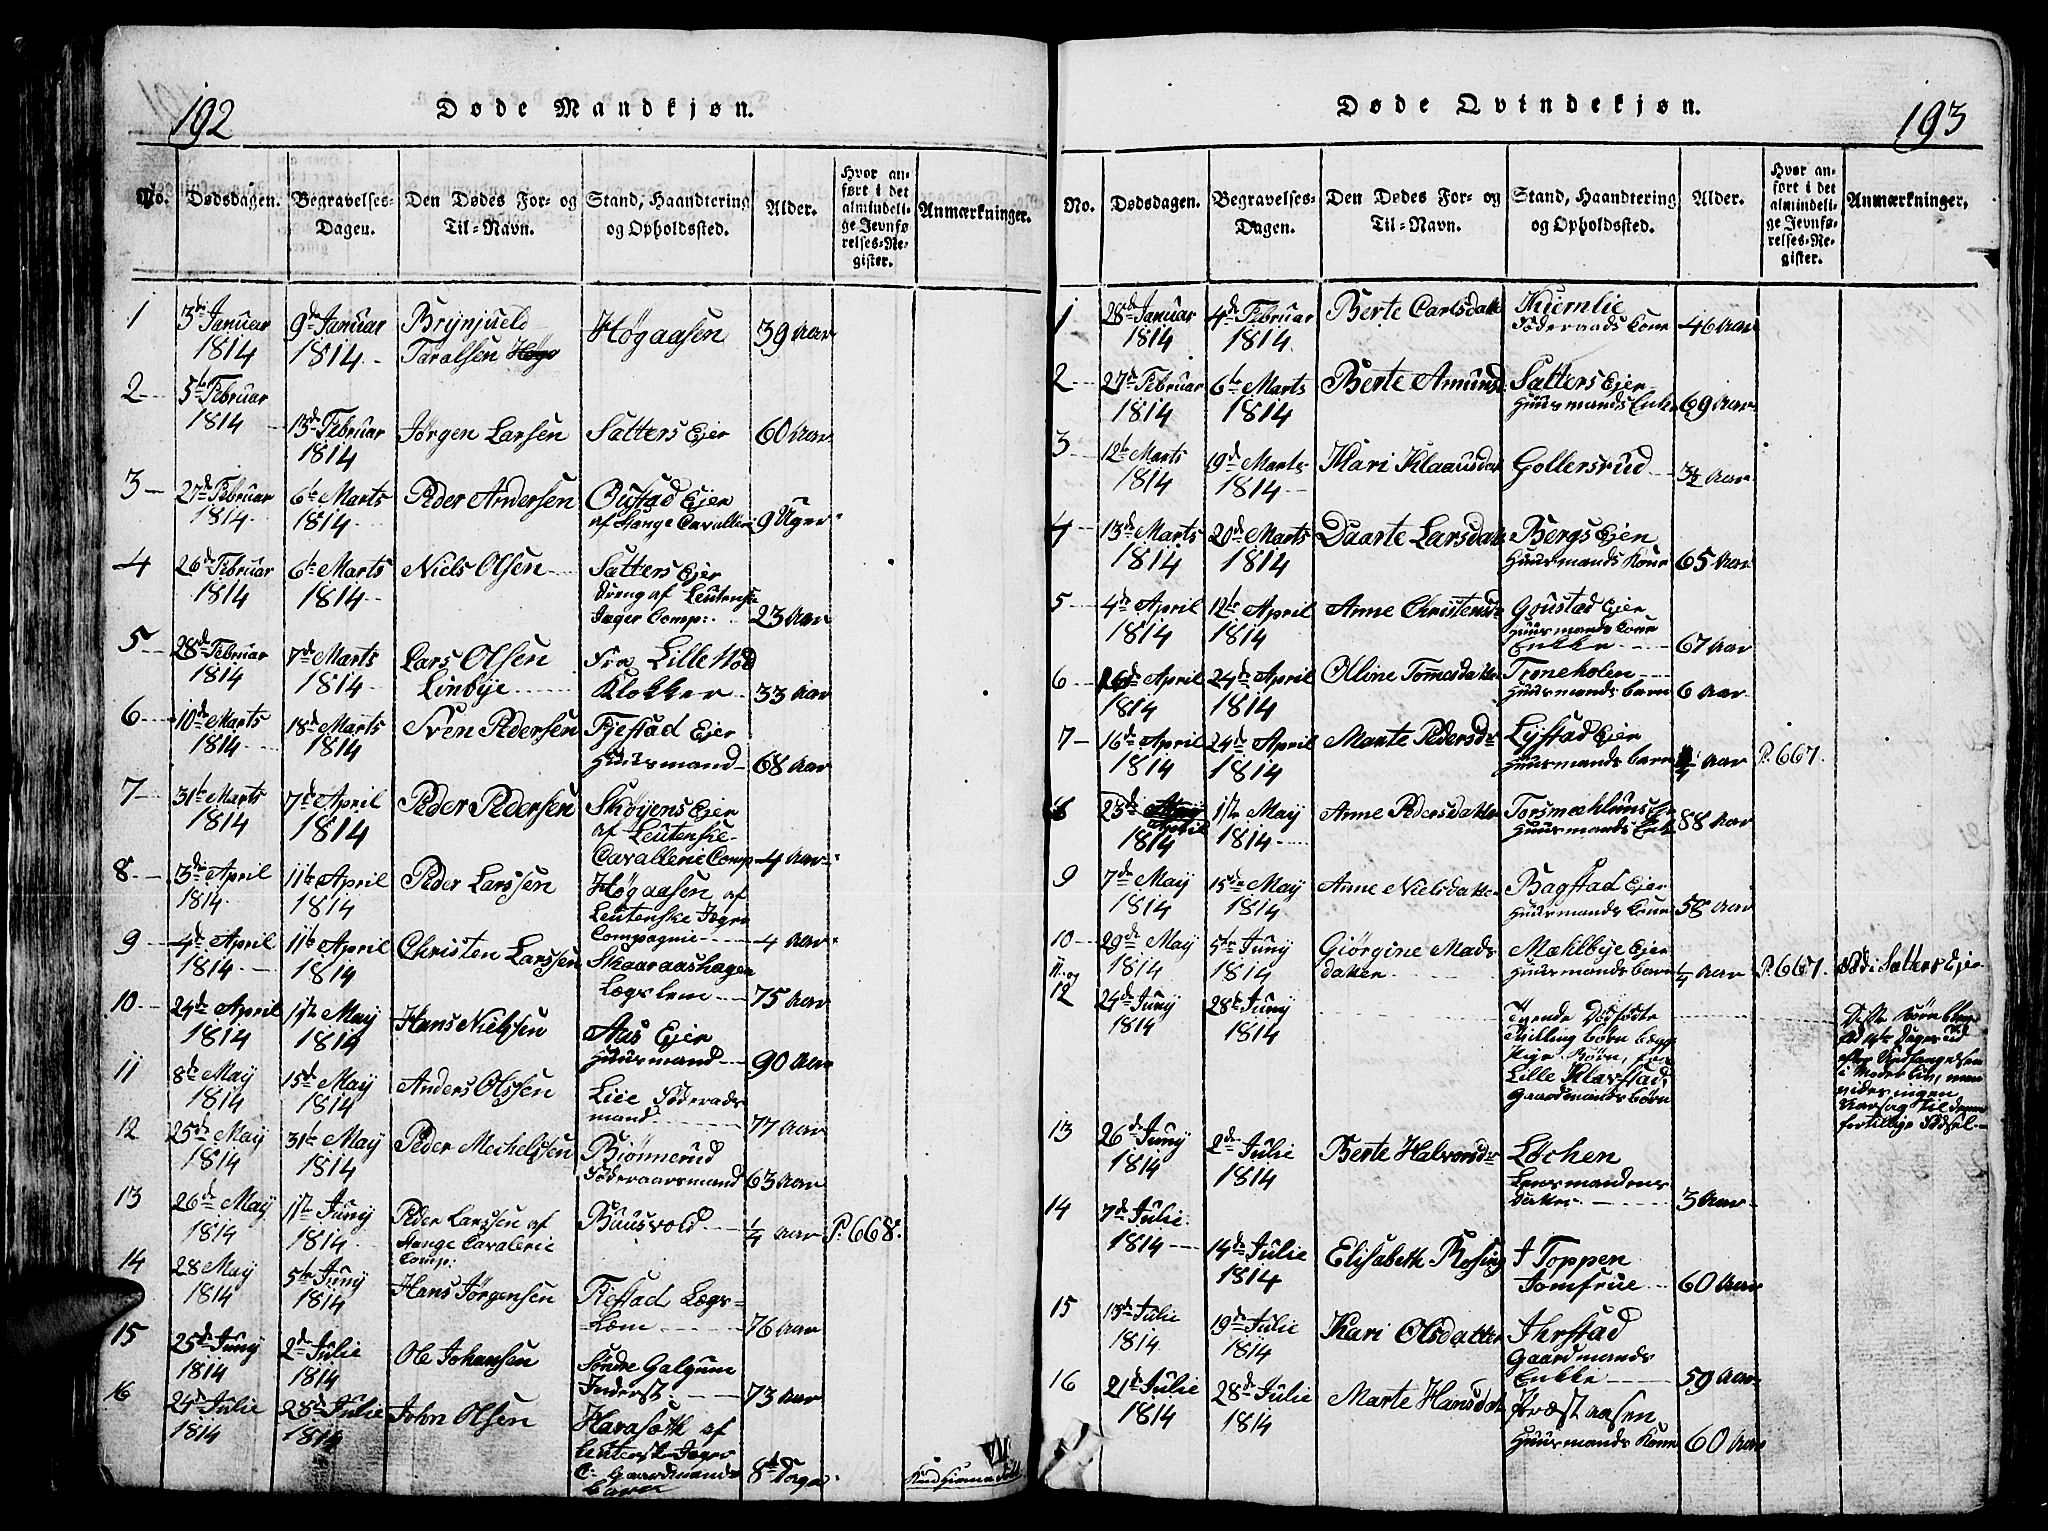 192
Døde Mandkjøn.
No.
Dødsdagen.
Begravelses-
Dagen.
Den Dødes For- og
Til-Navn.
Stand, Haandtering
og Opholdssted.
Alder.
Hvor an-
ført i det
almindeli-
ge Jevnfø-
relses-Re-
gister.
Anmærkninger.
1 3de Januar 1814 9de Januar 1814 Brynjueld Taralsen Høgaasen 39 Aar
2 5te Februar 1814 13de Februar 1814 Jørgen Larsen Sætters Ejer 60 Aar
3 27de Februar 1814 6te Marts 1814 Peder Andersen Oustad Ejer af Hange Cavalleri 9 Uger
4 26de Februar 1814 6te Marts 1814 Niels Olsen Sætters Ejer dreng af Leutenske Jager Comp: 23 Aar
5 28de Februar 1814 7de Marts 1814 Lars Olsen Linbye Fra Lille Klokker 33 Aar
6 10de Marts 1814 18de Marts 1814 Sven Pedersen Fjestad Ejer Huusmand 68 Aar
7 31te Marts 1814 7de April 1814 Peder Pedersen Skøyens Ejer af Leutenske Cavallerie Comp 4 Aar
8 3die April 1814 11te April 1814 Peder Larssen Høgaasen af Leutenske Jegre Compagnie 4 Aar
9 4de April 1814 11te April 1814 Christen Larssen Skaaraashagen Lægslem 75 Aar
10 24de April 1814 1ste May 1814 Hans Nielssen Aas Ejer Huusmand 90 Aar
11 8de May 1814 15de May 1814 Anders Olssen Lie Föderads mand 77 Aar
12 25de May 1814 31te May 1814 Peder Mechelssen Biønnerud Föderaarsmand 63 Aar
13 26de May 1814 1ste Juny 1814 Peder Larssen af Hange Cavalerie Comp: Buusvold 1/4 Aar P. 668.
14 28 May 1814 5te Juny 1814 Hans Jørgensen Fiestad Lægs-Læm 76 Aar
15 25de Juny 1814 2de Julie 1814 Ole Johansen Søndre Galgum Inderst. 73 Aar
16 24de Julie 1814 28de Julie 1814 John Olsen Harasæth af Leutensk Jegre C: Gaardmands barn 8te Dage
193
Døde Qvindekjøn.
No.
Dødsdagen.
Begravelses-
Dagen.
Den Dødes For- og
Til-Navn.
Stand, Haandtering
og Opholdssted.
Alder.
Hvor an-
ført i det
almindeli-
ge Jevnfø-
relses-Re-
gister.
Anmærkninger.
1 28de Januar 1814 4de Februar 1814 Berte Carlsdatter Kurnlie Föderaads Kone 46 Aar
2 27de Februar 1814 6te Marts 1814 Berte Amunds Sætters Ejer Huusmands Enke 69 Aar
3 12te Marts 1814 19de Marts 1814 Kari Klaausdat Gollersrud 3/4 Aar
4 13de Marts 1814 20de Marts 1814 Daarte Larsdatt Bergs Ejer Huusmands Kone 65 Aar
5 4de April 1814 12te April 1814 Anne Christensd Goustad Ejer Huusmands Kone Enkke 67 Aar
6 16de April 1814 24de April 1814 Oline Tomesdatter Troneholen Huusmands barn 6 Aar
7 16de April 1814 24de April 1814 Marte Pedersdr Lystad Ejer Huusmands barn 1/4 Aar P. 667.
8 23de April 1814 1ste May 1814 Anne Pedersdatter Torsmæhluns Ejer Huusmands Enk 88 Aar
9 7de May 1814 15de May 1814 Anne Nielsdatter Bagstad Ejer Huusmands Kone 58 Aar
10 29de May 1814 5te Juny 1814 Giørgine Mads datter Mæhlbye Ejer Huusmands barn 1/4 Aar P. 667. død i Sætters Ejer
11 og 12 24de Juny 1814 28de Juny 1814 Tvende Dødfødte Tvilling børn begge Pige Børn, fra Lille Klavstad, Gaardmands børn Disse Børn
i Moders liv, man
vider ingen
Aarsag til denne
fortillige Fødsel
13 26de Juny 1814 2de Julie 1814 Berte Halvorsdr Løchen Lensmandens Datter 3 Aar
14 7de Julie 1814 14de Julie 1814 Elisabeth Rosing I Toppen Jomfrue 60 Aar
15 13de Julie 1814 19de Julie 1814 Kari Olsdatter Ihrstad Gaardmands Enkke 59 Aar
16 21de Julie 1814 28de Julie 1814 Marte Hansdat Præstaasen Huusmands Kone 60 Aar